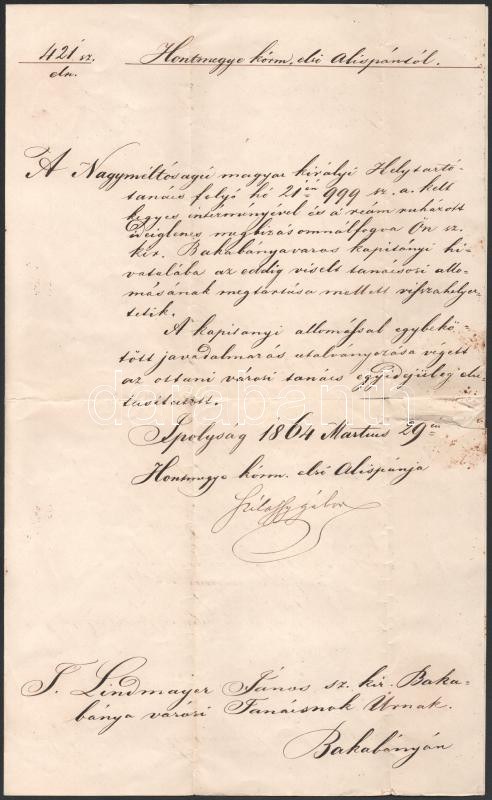 421 sz.
eln.
Hontmegye körm. első Alispántól.
A Nagyméltóságú magyar királyi Helytartó-
tanács folyó hó 21én 999 sz. a. kelt
kegyes intézményével és a reám ruházott
ideiglenes megbizásomnálfogva Ön sz.
kir. Bakabányavaros kapitányi hi-
vatalába az eddig viselt tanácsosi állo-
másának megtartása mellett visszahelyez-
tetik.
A kapitanyi allomással egybekö-
tött javadalmazás utalványozása végett
az ottani városi tanács egyidejűleg
utasitatott.
Ipolyság 1864 Martius 29én
Hontmegye körm. első Alispánja
Szilassy Gábor
T. Lindmayer János sz. kir. Baka-
bánya városi Tanácsnok Úrnak.
Bakabányán